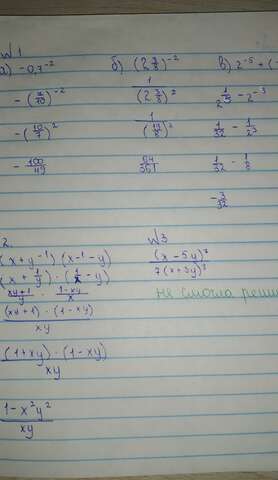 W 1
а) -0,7⁻²
б) (2 3/8)⁻²
в) 2⁻⁵ + (-
-(7/10)⁻²
1/(2 3/8)²
1/2⁵ - 2⁻³
-(10/7)²
1/(19/8)²
1/32 - 1/2³
-100/49
64/361
1/32 - 1/8
-3/32
2.
W 3
(x + y⁻¹) (x⁻¹ - y)
(x + 1/y) · (1/x - y)
(xy+1)/y · (1-xy)/x
((xy+1) · (1-xy))/xy
((1+xy) · (1-xy))/xy
(1-x²y²)/xy
не смогла реши